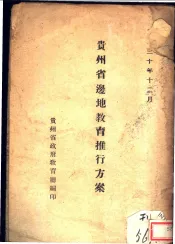 三十年十二月
貴州省邊地教育推行方案
貴州省政府教育廳編印